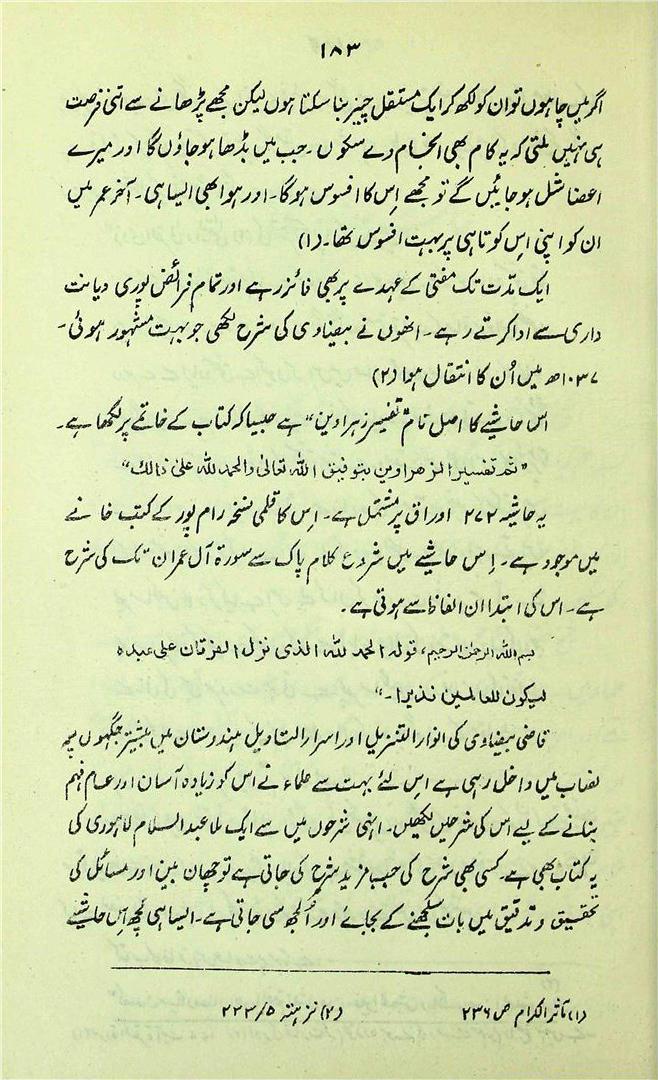 ۱۸۳
اگر میں چاہوں تو ان کو لکھ کر ایک مستقل چیز بنا سکتا ہوں لیکن مجھے پڑھانے سے اتنی فرصت
ہی نہیں ملتی کہ یہ کام بھی انجام دے سکوں۔ جب میں بڈھا ہو جاؤں گا اور میرے
اعضا شل ہو جائیں گے تو مجھے اِس کا افسوس ہوگا۔ اور ہوا بھی ایسا ہی۔ آخر عمر میں
ان کو اپنی اس کوتاہی پر بہت افسوس تھا۔ (۱)
ایک مدّت تک مفتی کے عہدے پر بھی فائز رہے اور تمام فرائض پوری دیانت
داری سے ادا کرتے رہے۔ انھوں نے بیضاوی کی شرح لکھی جو بہت مشہور ہوئی۔
۱۰۳۷ھ میں اُن کا انتقال ہوا (۲)
اس حاشیے کا اصل نام "تفسیر زہراوین" ہے جیسا کہ کتاب کے خاتمے پر لکھا ہے۔
"تمّ تفسیر الزھراوین بتوفیق اللہ تعالیٰ والحمد للہ علیٰ ذالک"
یہ حاشیہ ۲۷۲ اوراق پر مشتمل ہے۔ اِس کا قلمی نسخہ رام پور کے کتب خانے
میں موجود ہے۔ اِس حاشیے میں شروع کلام پاک سے سورۃ آل عمران تک کی شرح
ہے۔ اس کی ابتدا ان الفاظ سے ہوتی ہے۔
بسم اللہ الرحمٰن الرحیم، قولہ الحمد للہ الذی نزل الفرقان علی عبدہ
لیکون للعالمین نذیرا۔"
قاضی بیضاوی کی انوار التنزیل اور اسرار التاویل ہندوستان میں بیشتر جگہوں پہ
نصاب میں داخل رہی ہے اس لئے بہت سے علماء نے اس کو زیادہ آسان اور عام فہم
بنانے کے لیے اس کی شرحیں لکھیں۔ انہی شرحوں میں سے ایک ملا عبد السلام لاہوری کی
یہ کتاب بھی ہے۔ کسی بھی شرح کی جب مزید شرح کی جاتی ہے تو چھان بین اور مسائل کی
تحقیق و تدقیق میں بات سلجھنے کے بجائے اور اُلجھ سی جاتی ہے۔ ایسا ہی کچھ اِس حاشیے
(۱) مآثر الکرام ص ۲۳۶ (۲) نزہتہ ۵/۲۲۳